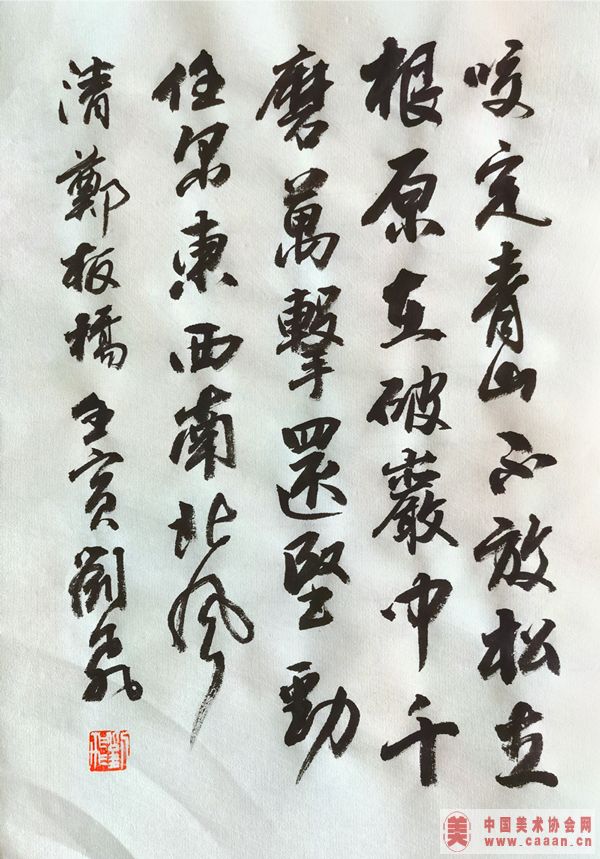 咬定青山不放松立
根原在破巖中千
磨萬擊還堅勁
任尔東西南北風
清鄭板橋壬寅劉飛
美
中国美术协会网
www.caaan.cn